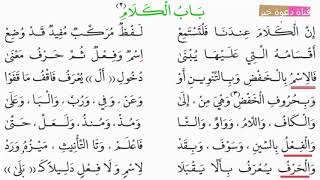 قناة دعوة خير
بَابُ الْكَلَامِ (٢)
إِنَّ الْكَلَامَ عِنْدَنَا فَلْتَسْتَمِعْ لَفْظٌ مُرَكَّبٌ مُفِيدٌ قَدْ وُضِعْ
أَقْسَامُهُ الَّتِي عَلَيْهَا يُبْنَى اِسْمٌ وَفِعْلٌ ثُمَّ حَرْفُ مَعْنَى
فَالِاسْمُ بِالْخَفْضِ وَبِالتَّنْوِينِ أَوْ دُخُولِ «أَلْ» يُعْرَفُ فَاقْفُ مَا قَفَوْا
وَبِحُرُوفِ الْخَفْضِ(٣) وَهْيَ: مِنْ، إِلَى وَعَنْ، وَفِي، وَرُبَّ، وَالْبَا، وَعَلَى
وَالْكَافُ، وَاللَّامُ، وَوَاوٌ، وَالتَّا وَمُذْ، وَمُنْذُ، وَلَعَلَّ، حَتَّى
وَالْفِعْلُ بِالسِّينِ، وَسَوْفَ، وَبِقَدْ فَاعْلَمْ، وَتَا التَّأْنِيثِ، مَيْزُهُ وَرَدْ
وَالْحَرْفُ يُعْرَفُ بِأَلَّا يَقْبَلَا لِاسْمٍ وَلَا فِعْلٍ دَلِيلًا كَـ«بَلَى»